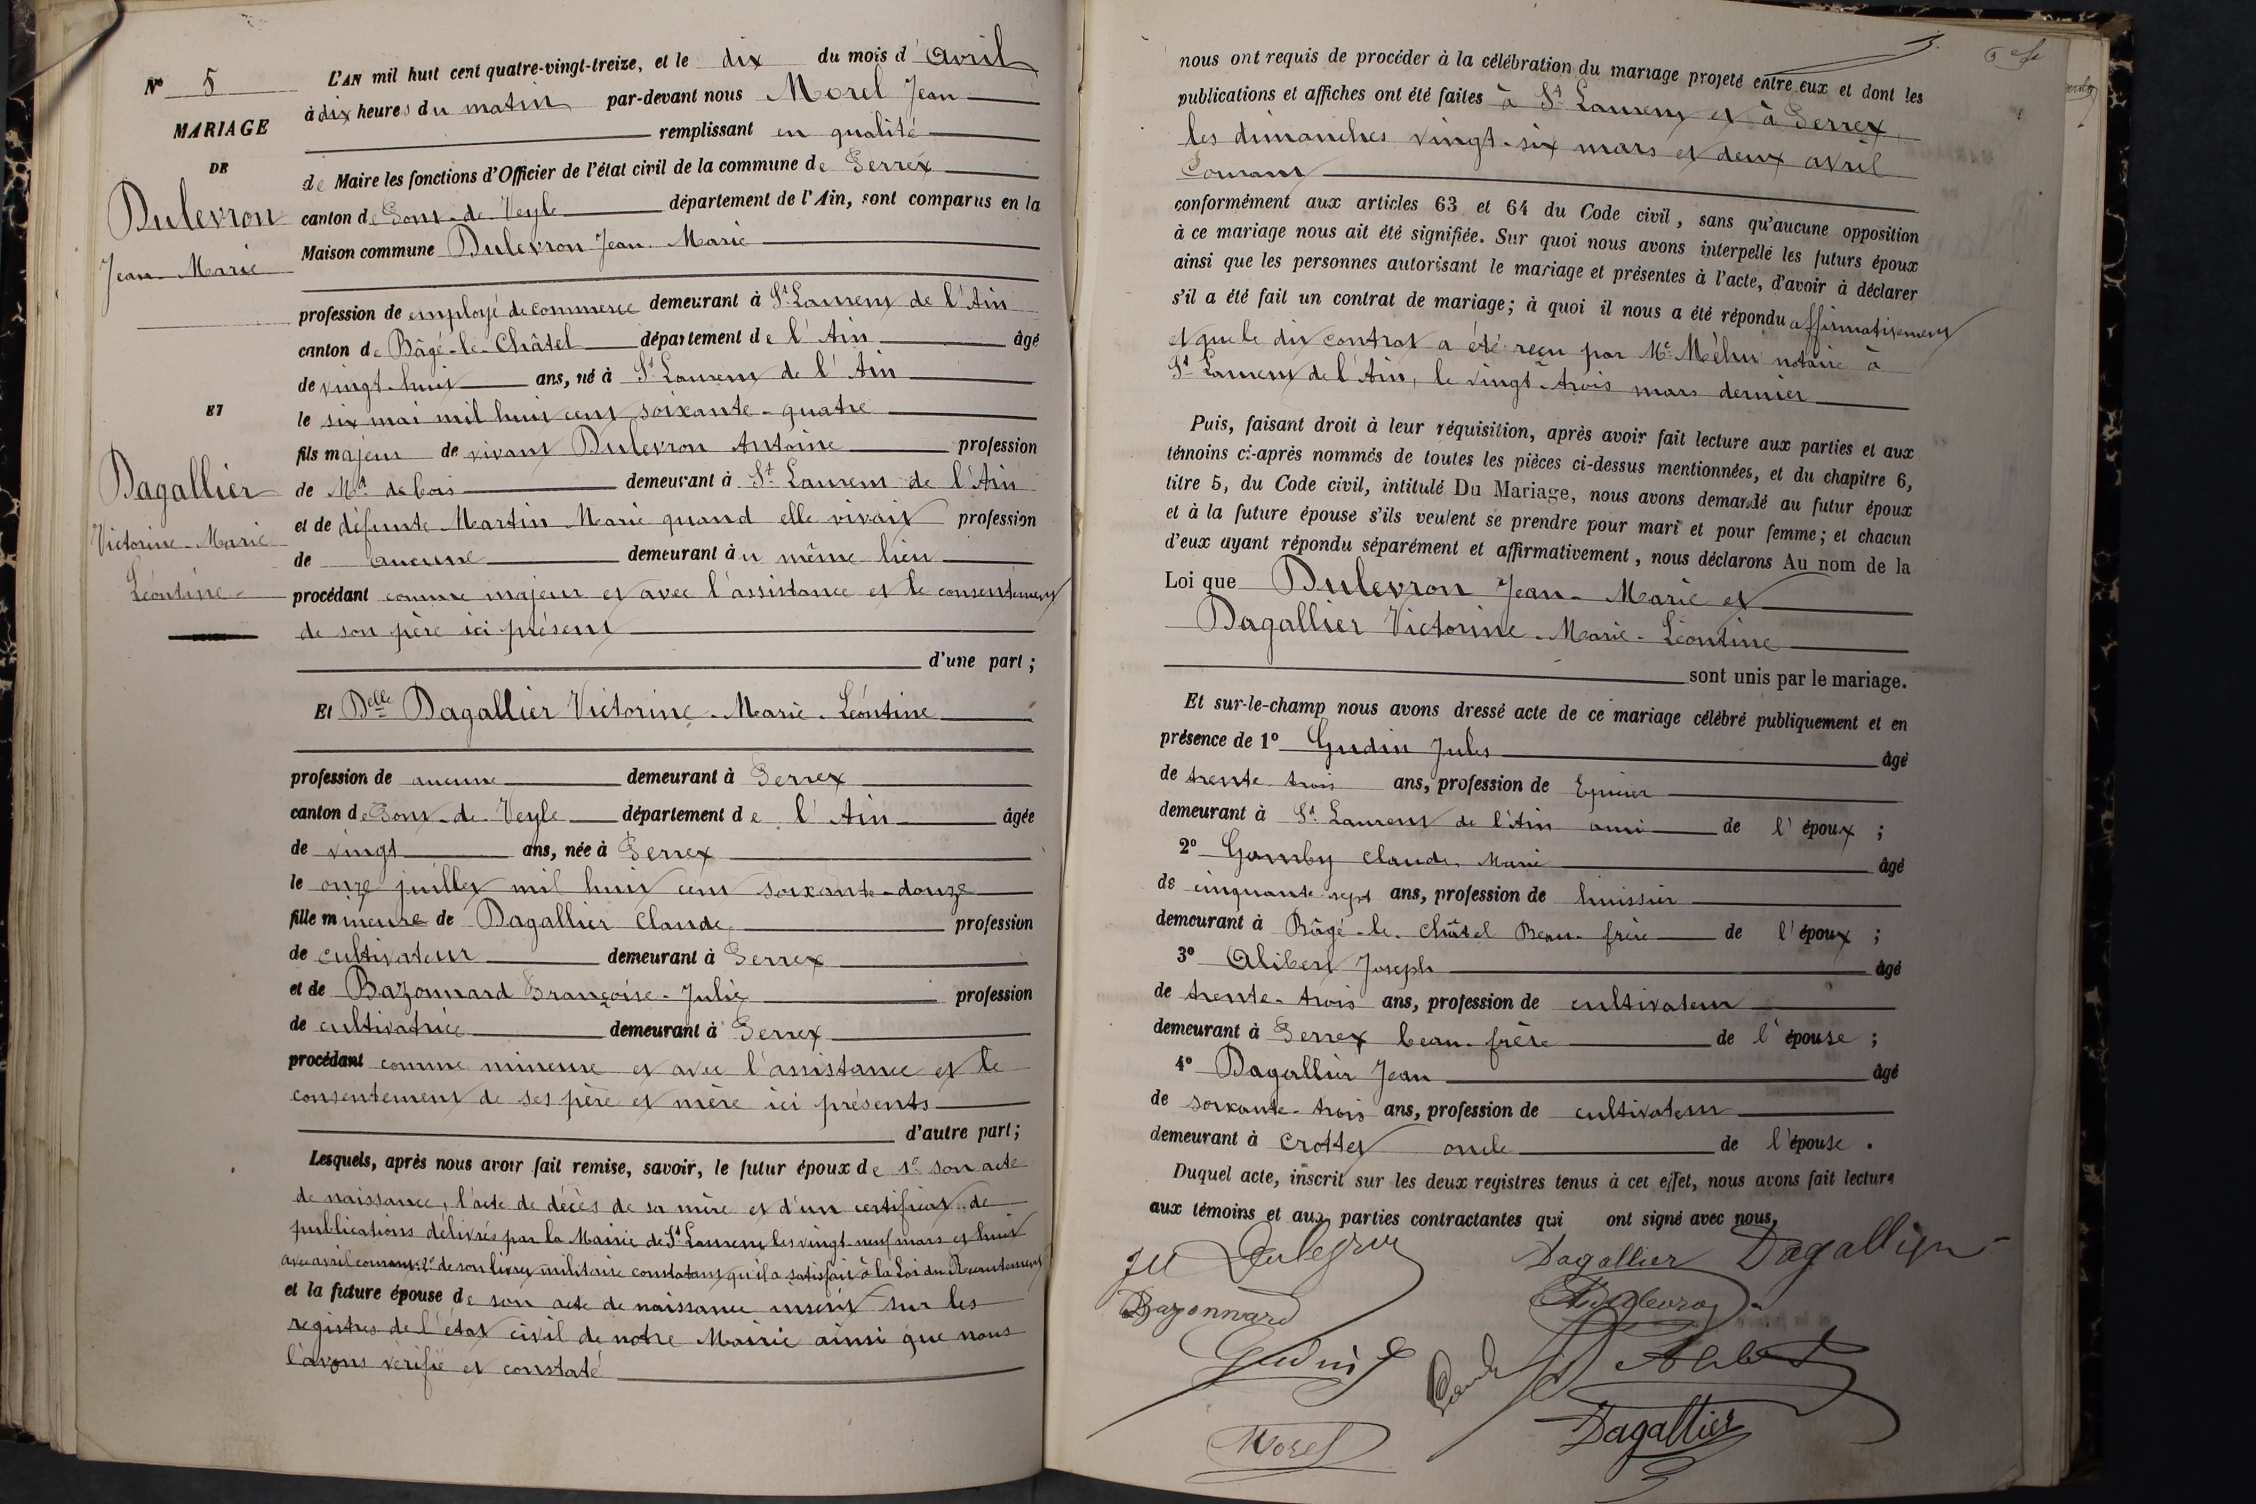 N° 5
MARIAGE
DE
Dulevron
Jean-Marie
ET
Dagallier
Victorine-Marie
Léontine
L'AN mil huit cent quatre-vingt-treize, et le dix du mois d'avril
à dix heures du matin par-devant nous Morel Jean
remplissant en qualité
de Maire les fonctions d'Officier de l'état civil de la commune de Perrex
canton de Pont-de-Veyle département de l'Ain, sont comparus en la
Maison commune Dulevron Jean-Marie
profession de employé de commerce demeurant à St Laurent de l'Ain
canton de Bâgé-le-Châtel département de l'Ain âgé
de vingt-huit ans, né à St Laurent de l'Ain
le six mai mil huit cent soixante-quatre
fils majeur de vivant Dulevron Antoine profession
de Md de bois demeurant à St Laurent de l'Ain
et de défunte Martin Marie quand elle vivait profession
de aucune demeurant àu même lieu
procédant comme majeur et avec l'assistance et le consentement
de son père ici présent
d'une part;
Et Delle Dagallier Victorine-Marie-Léontine
profession de aucune demeurant à Perrex
canton de Pont-de-Veyle département de l'Ain âgée
de vingt ans, née à Perrex
le onze juillet mil huit cent soixante-douze
fille mineure de Dagallier Claude profession
de cultivateur demeurant à Perrex
et de Bazonnard Françoise-Julie profession
de cultivatrice demeurant à Perrex
procédant comme mineure et avec l'assistance et le
consentement de ses père et mère ici présents
d'autre part;
Lesquels, après nous avoir fait remise, savoir, le futur époux de 1° son acte
de naissance, l'acte de décès de sa mère et d'un certificat de
publications délivrés par la Mairie de St Laurent les vingt-neuf mars et huit
avril courant; 2° de son livret militaire constatant qu'il a satisfait à la Loi du Recrutement
et la future épouse de son acte de naissance inscrit sur les
registres de l'état civil de notre Mairie ainsi que nous
l'avons vérifié et constaté
nous ont requis de procéder à la célébration du mariage projeté entre eux et dont les
publications et affiches ont été faites à St Laurent et à Perrex
les dimanches vingt-six mars et deux avril
courant
conformément aux articles 63 et 64 du Code civil, sans qu'aucune opposition
à ce mariage nous ait été signifiée. Sur quoi nous avons interpellé les futurs époux
ainsi que les personnes autorisant le mariage et présentes à l'acte, d'avoir à déclarer
s'il a été fait un contrat de mariage; à quoi il nous a été répondu affirmativement
et que le dit contrat a été reçu par Me Méhu notaire à
St Laurent de l'Ain, le vingt-trois mars dernier
Puis, faisant droit à leur réquisition, après avoir fait lecture aux parties et aux
témoins ci-après nommés de toutes les pièces ci-dessus mentionnées, et du chapitre 6,
titre 5, du Code civil, intitulé Du Mariage, nous avons demandé au futur époux
et à la future épouse s'ils veulent se prendre pour mari et pour femme; et chacun
d'eux ayant répondu séparément et affirmativement, nous déclarons Au nom de la
Loi que Dulevron Jean-Marie et
Dagallier Victorine-Marie-Léontine
sont unis par le mariage.
Et sur-le-champ nous avons dressé acte de ce mariage célébré publiquement et en
présence de 1° Gudin Jules âgé
de trente-trois ans, profession de Epicier
demeurant à St Laurent de l'Ain ami de l'époux;
2° Gamby Claude Marie âgé
de cinquante-sept ans, profession de huissier
demeurant à Bâgé-le-Châtel Beau-frère de l'époux;
3° Alibert Joseph âgé
de trente-trois ans, profession de cultivateur
demeurant à Perrex beau-frère de l'épouse;
4° Dagallier Jean âgé
de soixante-trois ans, profession de cultivateur
demeurant à Crottet oncle de l'épouse.
Duquel acte, inscrit sur les deux registres tenus à cet effet, nous avons fait lecture
aux témoins et aux parties contractantes qui ont signé avec nous.
Dulevron Dagallier Dagallier
Bazonnard
Gudin Alibert
Morel Dagallier